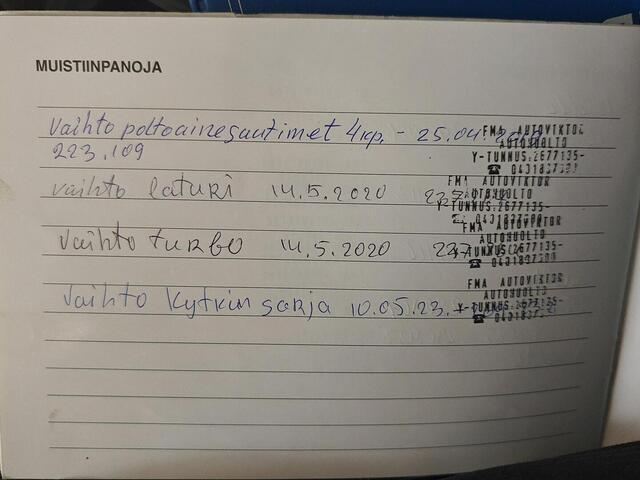 MUISTIINPANOJA
Vaihto polttoainesuutimet 4kp. - 25.04.
FMA AUTOVIKTOR
AUTOHUOLTO
223.109
Y-TUNNUS:2677135-
☎ 0431837
vaihto laturi 14.5.2020
FMA AUTOVIKTOR
AUTOHUOLTO
Y-TUNNUS:2677135-
vaihto turbo 14.5.2020
FMA AUTOVIKTOR
AUTOHUOLTO
Y-TUNNUS:2677135-
☎ 0431837
Vaihto kytkin sarja 10.05.23.
FMA AUTOVIKTOR
AUTOHUOLTO
Y-TUNNUS:2677135-
☎ 0431837